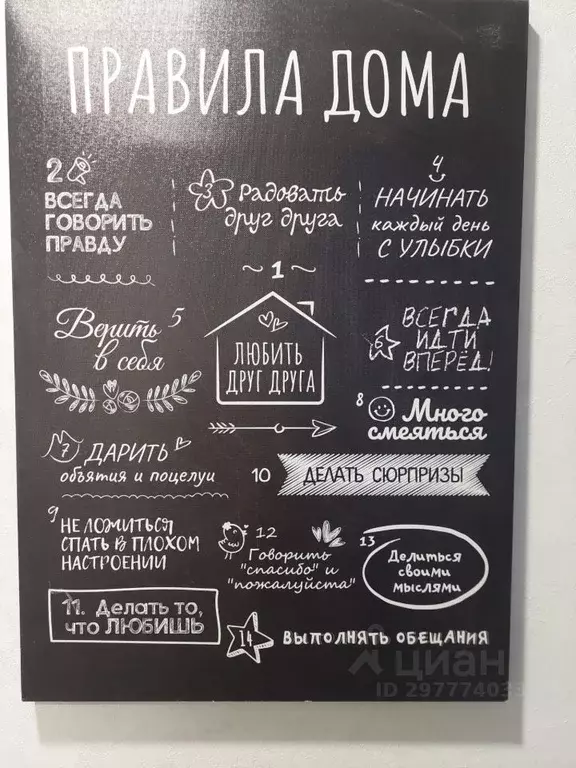 ПРАВИЛА ДОМА
2
ВСЕГДА
ГОВОРИТЬ
ПРАВДУ
3 Радовать
друг друга
4
НАЧИНАТЬ
каждый день
С УЛЫБКИ
~ 1 ~
ЛЮБИТЬ
ДРУГ ДРУГА
Верить 5
в себя
6
ВСЕГДА
ИДТИ
ВПЕРЁД!
7 ДАРИТЬ
объятия и поцелуи
8 Много
смеяться
9
НЕ ЛОЖИТЬСЯ
СПАТЬ В ПЛОХОМ
НАСТРОЕНИИ
10 ДЕЛАТЬ СЮРПРИЗЫ
11. Делать то,
что ЛЮБИШЬ
12
Говорить
"спасибо" и
"пожалуйста"
13
Делиться
своими
мыслями
14 ВЫПОЛНЯТЬ ОБЕЩАНИЯ
циан